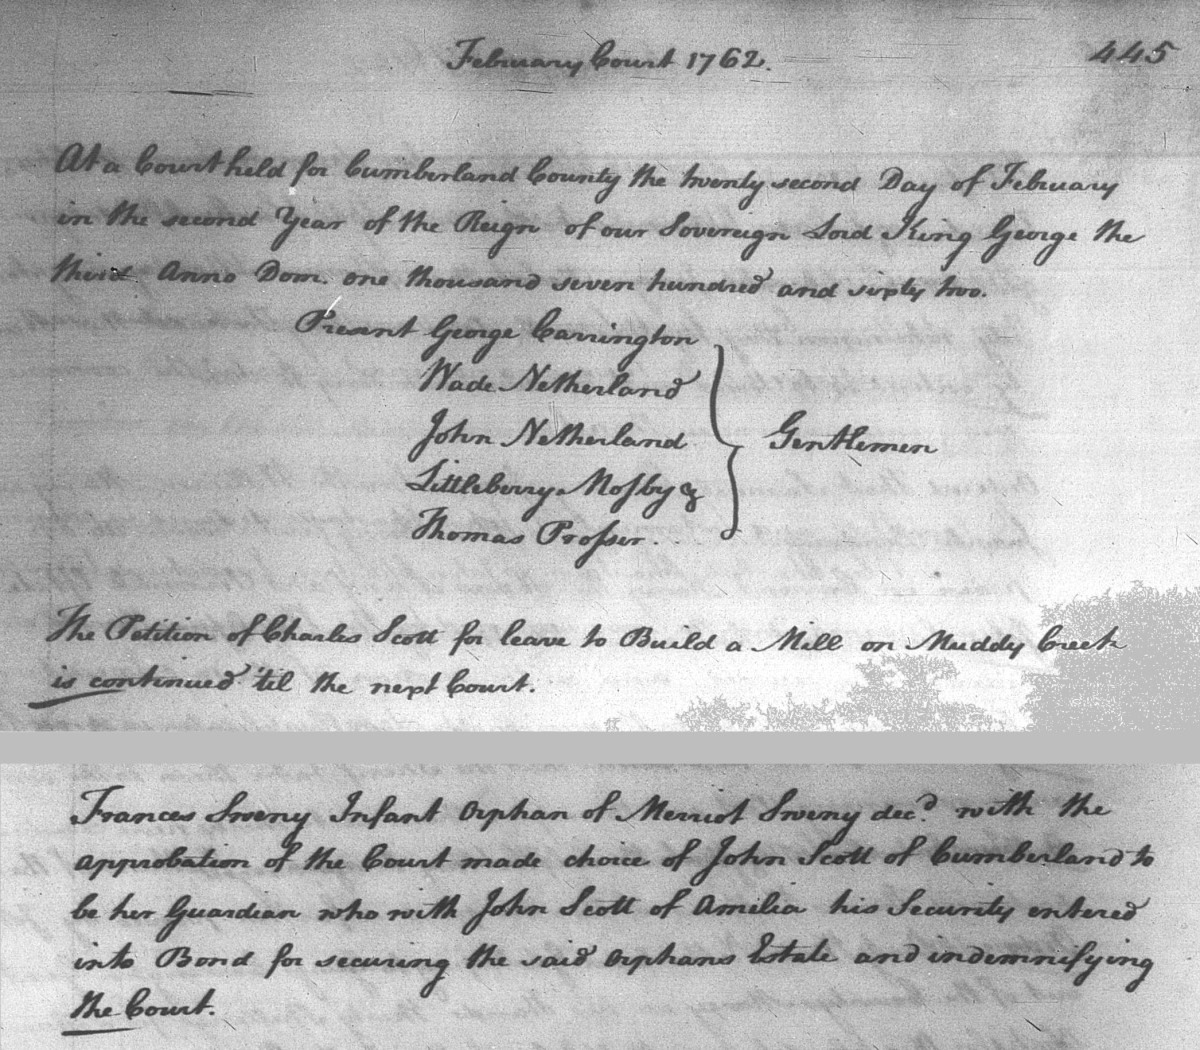 February Court 1762. 445
At a Court held for Cumberland County the twenty second Day of February
in the second Year of the Reign of our Sovereign Lord King George the
third Anno Dom. one thousand seven hundred and sixty two.
Present George Carrington
Wade Netherland
John Netherland Gentlemen
Littleberry Mosby &
Thomas Prosser.
The Petition of Charles Scott for leave to Build a Mill on Muddy Creek
is continued 'til the next Court.
Frances Sweny Infant Orphan of Merriot Sweny decd. with the
approbation of the Court made choice of John Scott of Cumberland to
be her Guardian who with John Scott of Amilia his Security entered
into Bond for securing the said Orphans Estate and indemnifying
the Court.